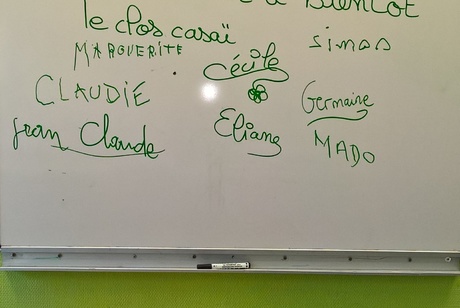 à BIENTOT
le clos casaï
MARGUERITE
Cécile
simon
CLAUDIE
Germaine
Jean Claude
Eliane
MADO